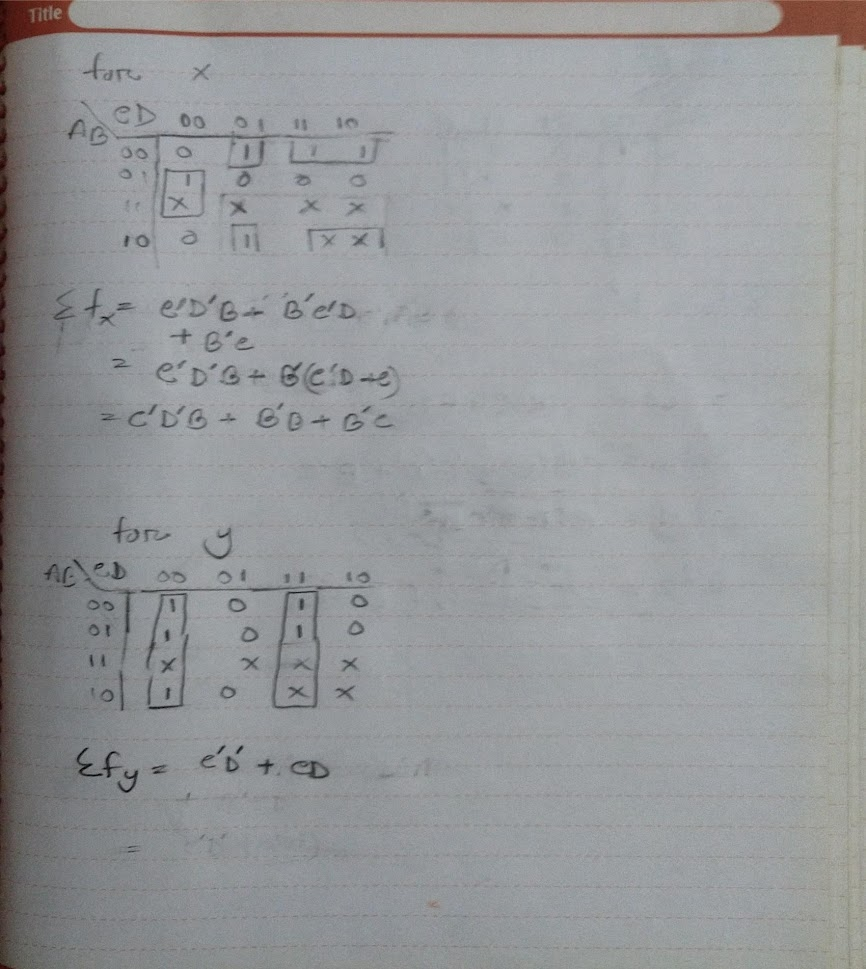 Title
for x
AB\CD 00 01 11 10
00 0 1 1 1
01 1 0 0 0
11 x x x x
10 0 1 x x
Σfx = C'D'B + B'C'D
+ B'C
= C'D'B + B'(C'D+C)
= C'D'B + B'D + B'C
for y
AB\CD 00 01 11 10
00 1 0 1 0
01 1 0 1 0
11 x x x x
10 1 0 x x
Σfy = C'D' + CD
=